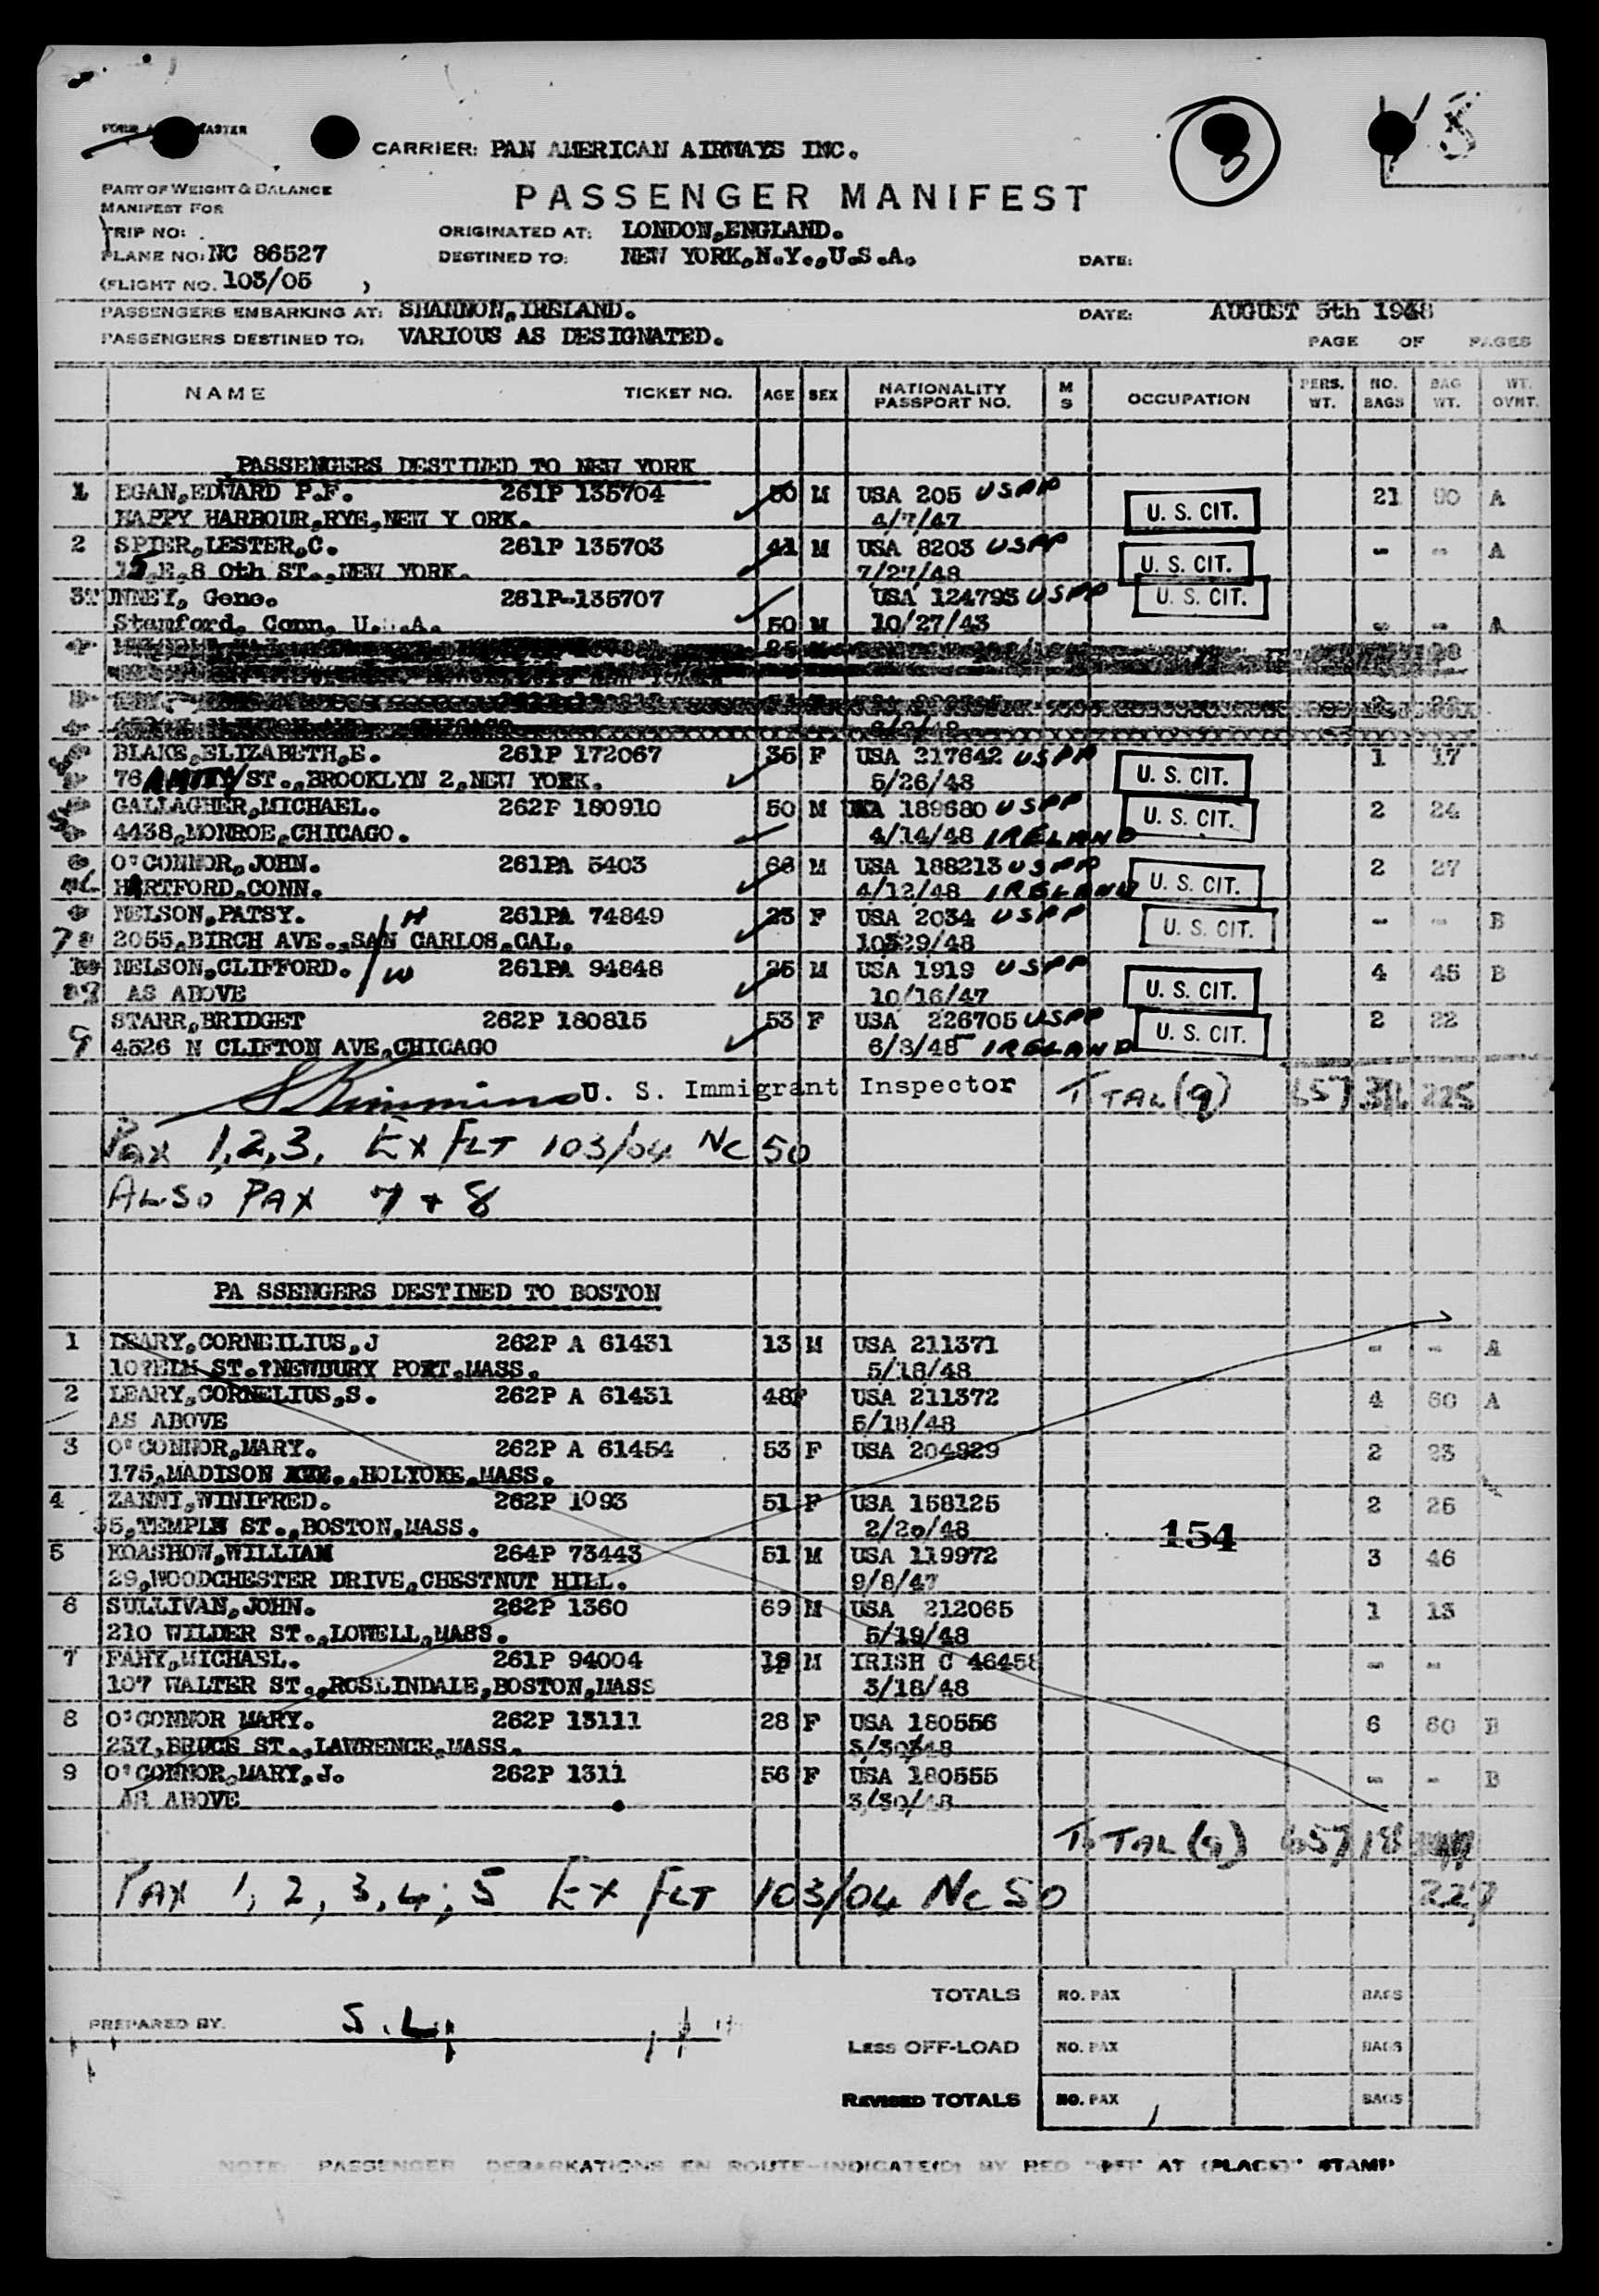 CARRIER: PAN AMERICAN AIRWAYS INC.
3
PART OF WEIGHT & BALANCE
MANIFEST FOR
PASSENGER MANIFEST
TRIP NO:
ORIGINATED AT: LONDON,ENGLAND.
PLANE NO: NC 86527 DESTINED TO: NEW YORK,N.Y.,U.S.A. DATE:
(FLIGHT NO. 103/05 )
PASSENGERS EMBARKING AT: SHANNON,IRELAND. DATE: AUGUST 5th 1948
PASSENGERS DESTINED TO: VARIOUS AS DESIGNATED. PAGE OF PAGES
NAME TICKET NO. AGE SEX NATIONALITY PASSPORT NO. M S OCCUPATION PERS. WT. NO. BAGS BAG WT. WT. OVNT.
PASSENGERS DESTINED TO NEW YORK
1 EGAN,EDWARD P.F. 261P 135704 50 M USA 205 USPP U. S. CIT. 21 90 A
HAPPY HARBOUR,RYE,NEW Y ORK. 4/7/47
2 SPIER,LESTER,C. 261P 135703 41 M USA 8203 USPP U. S. CIT. - - A
15,E,8 0th ST.,NEW YORK. 7/27/48
3TUNNEY, Gene. 261P-135707 USA 124793 USPP U. S. CIT.
Stamford, Conn, U. .A. 50 M 10/27/43 - - A
BLAKE,ELIZABETH,E. 261P 172067 36 F USA 217642 USPP U. S. CIT. 1 17
76 AMITY ST.,BROOKLYN 2,NEW YORK. 5/26/48
GALLAGHER,MICHAEL. 262P 180910 50 M 189680 USPP U. S. CIT. 2 24
4438,MONROE,CHICAGO. 4/14/48 IRELAND
O'CONNOR,JOHN. 261PA 5403 66 M USA 188213 USPP U. S. CIT. 2 27
HARTFORD,CONN. 4/12/48 IRELAND
NELSON,PATSY. H 261PA 74849 23 F USA 2034 USPP U. S. CIT. - - B
7 2055,BIRCH AVE.,SAN CARLOS,CAL. 10529/48
NELSON,CLIFFORD. W 261PA 94848 26 M USA 1919 USPP U. S. CIT. 4 45 B
8 AS ABOVE 10/16/47
STARR,BRIDGET 262P 180815 53 F USA 226705 USPP U. S. CIT. 2 22
9 4526 N CLIFTON AVE,CHICAGO 6/8/48 IRELAND
U. S. Immigrant Inspector TOTAL (9) 225
PAX 1,2,3, EX FLT 103/04 NC 50
ALSO PAX 7 + 8
PA SSENGERS DESTINED TO BOSTON
1 LEARY,CORNEILIUS,J 262P A 61431 13 M USA 211371 - - A
10?ELM ST.?NEWBURY PORT.MASS. 5/18/48
2 LEARY,CORNELIUS,S. 262P A 61431 48F USA 211372 4 60 A
AS ABOVE 5/18/48
3 O'CONNOR,MARY. 262P A 61454 53 F USA 204929 2 23
175,MADISON AVE.,HOLYOKE,MASS.
4 ZANNI,WINIFRED. 262P 1093 51 F USA 158125 2 26
35,TEMPLE ST.,BOSTON,MASS. 2/20/48
154
5 KOASHOW,WILLIAM 264P 73443 51 M USA 119972 3 46
29,WOODCHESTER DRIVE,CHESTNUT HILL. 9/8/47
6 SULLIVAN,JOHN. 262P 1360 69 M USA 212065 1 13
210 WILDER ST.,LOWELL,MASS. 5/19/48
7 FAHY,MICHAEL. 261P 94004 M IRISH C 46458 - -
107 WALTER ST.,ROSLINDALE,BOSTON,MASS 3/18/48
8 O'CONNOR MARY. 262P 13111 28 F USA 180556 6 60 B
237,BRUCE ST.,LAWRENCE,MASS. 3/30348
9 O'CONNOR,MARY,J. 262P 1311 56 F USA 180555 - - B
AS ABOVE 3/30/48
TOTAL (9) 657 18
PAX 1, 2, 3, 4; 5 EX FLT 103/04 NC 50 227
TOTALS NO. PAX BAGS
PREPARED BY. S.L.
LESS OFF-LOAD NO. PAX BAGS
REVISED TOTALS NO. PAX BAGS
NOTE: PASSENGER DEBARKATIONS EN ROUTE-INDICATE(D) BY RED "OFF AT (PLACE)" STAMP